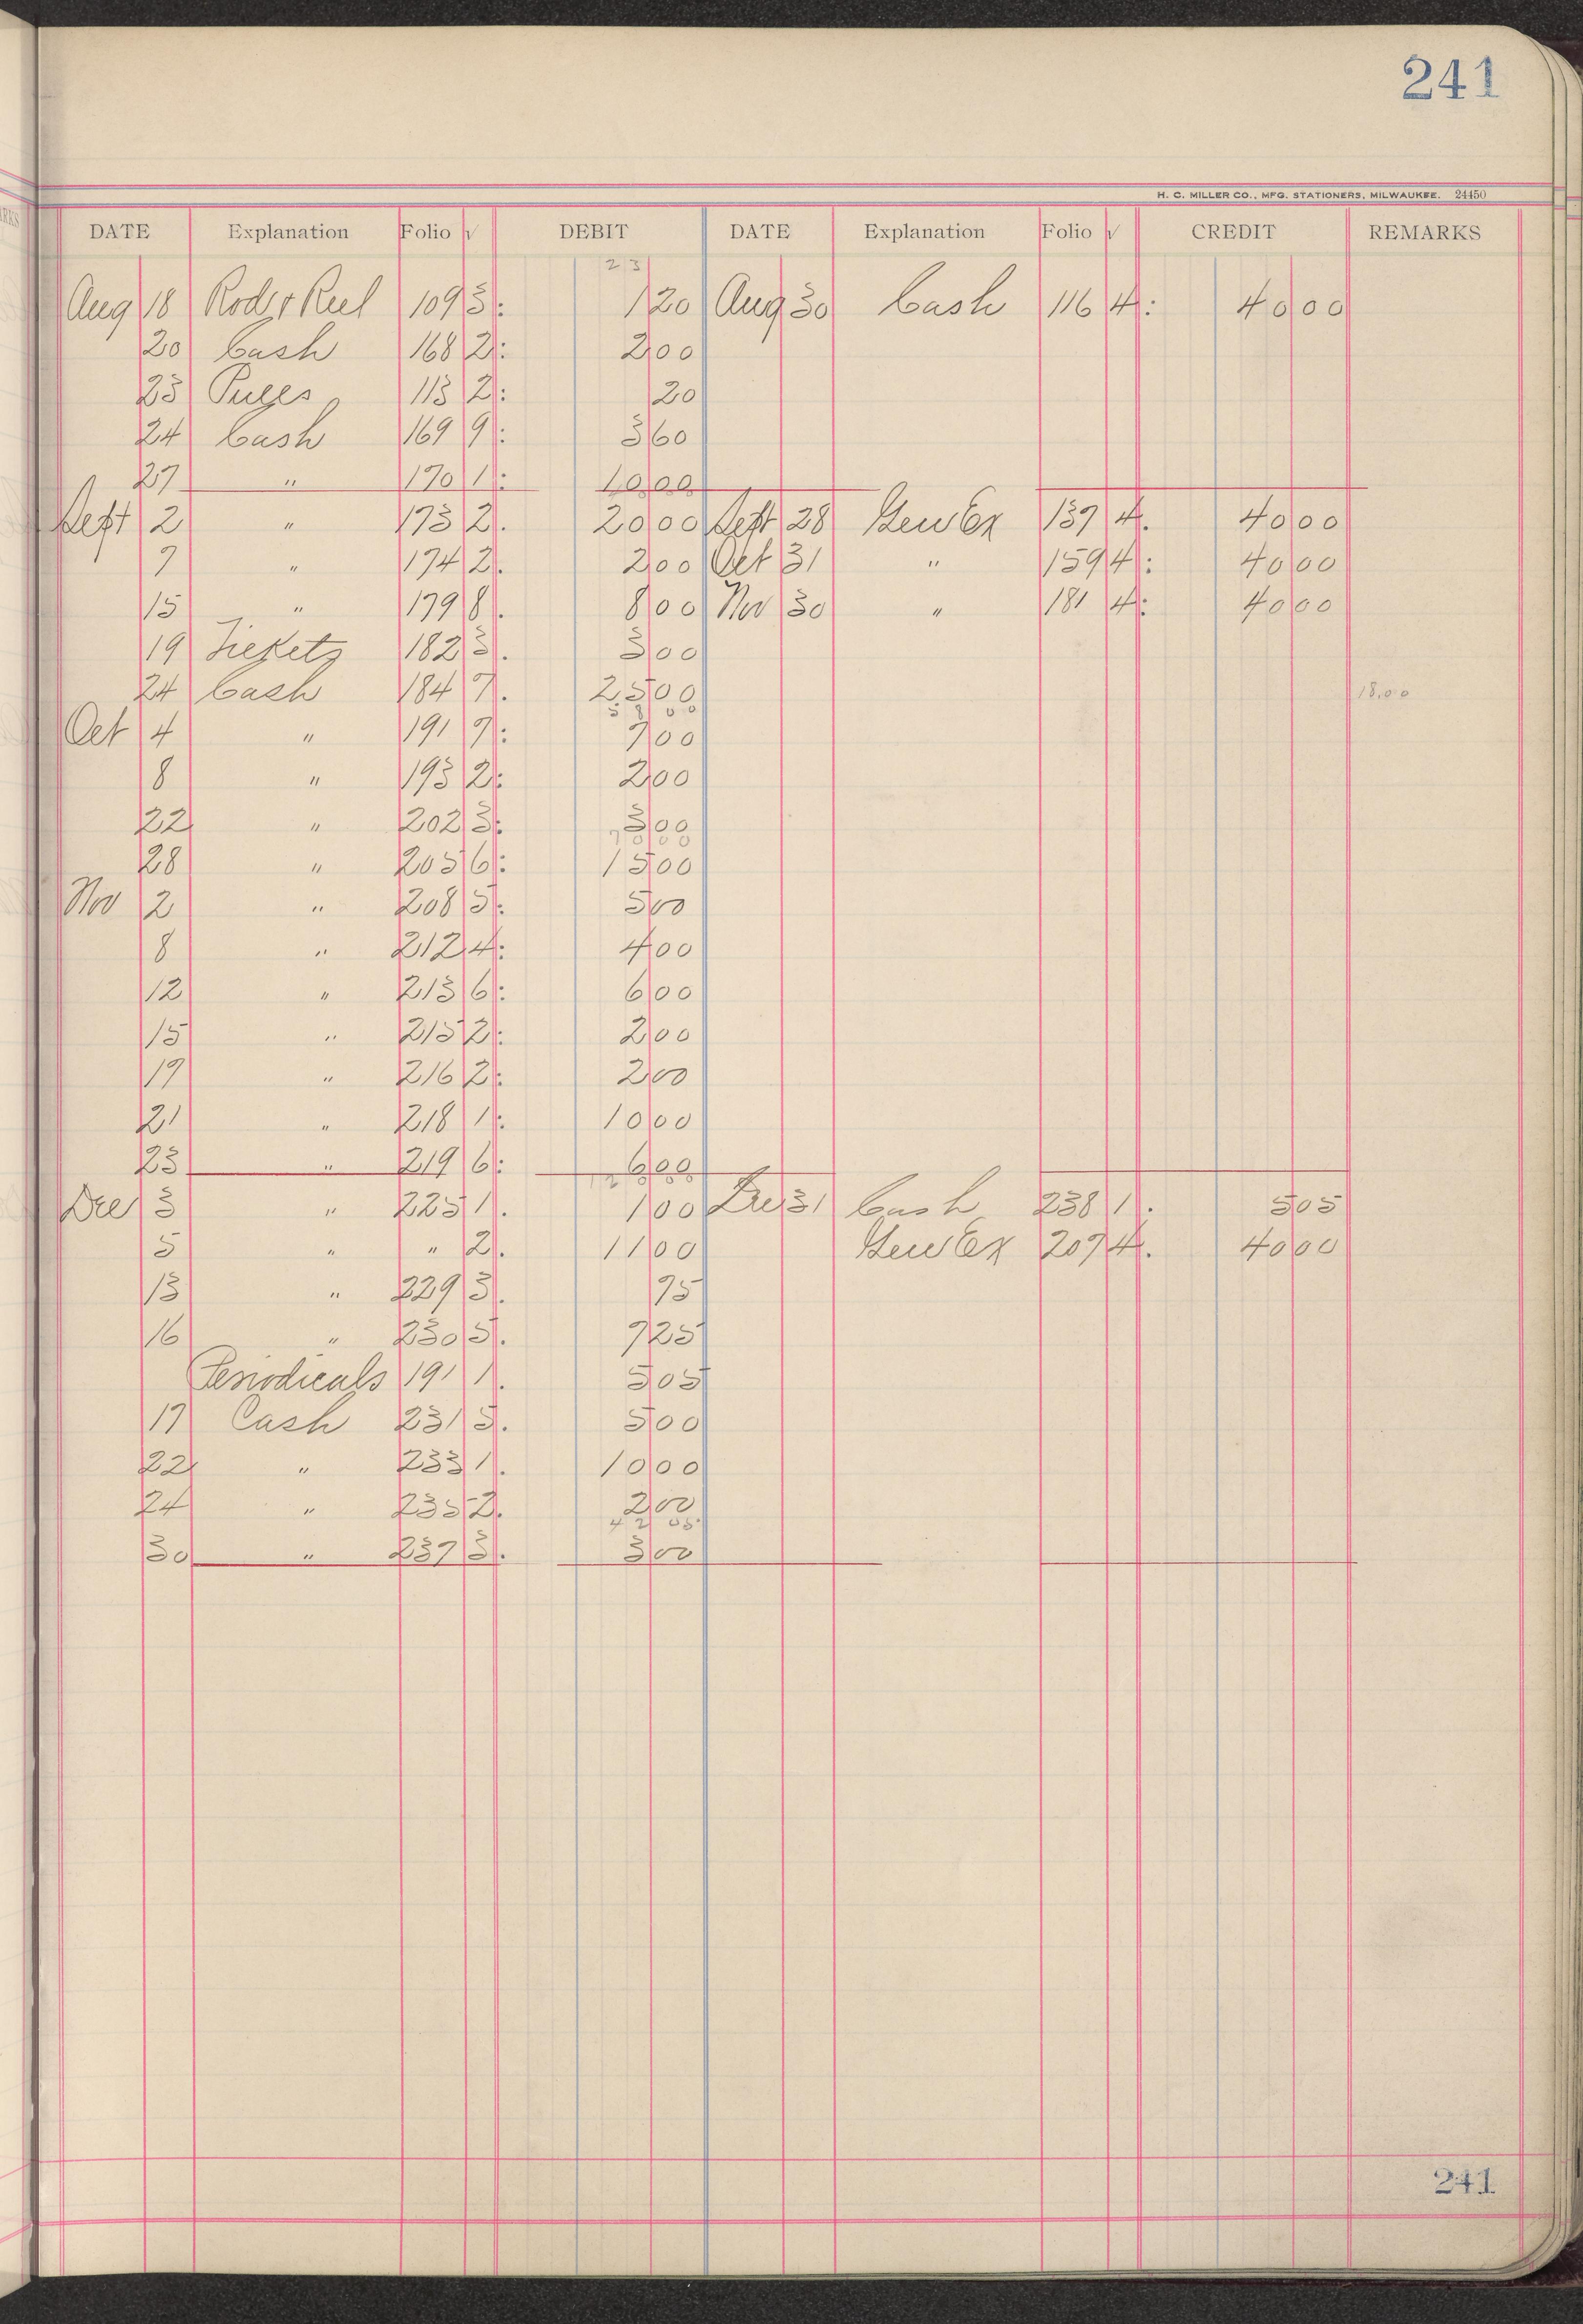 241
H. C. MILLER CO., MFG. STATIONERS, MILWAUKEE. 24450
DATE Explanation Folio √ DEBIT DATE Explanation Folio √ CREDIT REMARKS
23
Aug 18 Rod & Reel 109 3: 1 20 Aug 30 Cash 116 4: 40 00
20 Cash 168 2: 2 00
23 113 2: 20
24 Cash 169 9: 3 60
27 " 170 1: 10 00
Sept 2 " 173 2. 20 00 Sept 28 Gen Ex 137 4. 40 00
7 " 174 2. 2 00 Oct 31 " 159 4: 40 00
15 " 179 8. 8 00 Nov 30 " 181 4: 40 00
19 Tickets 182 3. 3 00
24 Cash 184 7. 25 00 18.00
58 00
Oct 4 " 191 7: 7 00
8 " 193 2: 2 00
22 " 202 3: 3 00
28 " 205 6: 15 00
Nov 2 " 208 5: 5 00
8 " 212 4: 4 00
12 " 213 6: 6 00
15 " 215 2: 2 00
19 " 216 2: 2 00
21 " 218 1: 10 00
23 " 219 6: 6 00
Dec 3 " 225 1. 1 00 Dec 31 Cash 238 1. 5 05
5 " " 2. 11 00 Gen Ex 207 4. 40 00
13 " 229 3. 75
16 " 230 5. 7 25
Periodicals 191 1. 5 05
17 Cash 231 5. 5 00
22 " 233 1. 10 00
24 " 235 2. 2 00
42 05
30 " 237 3. 3 00
241